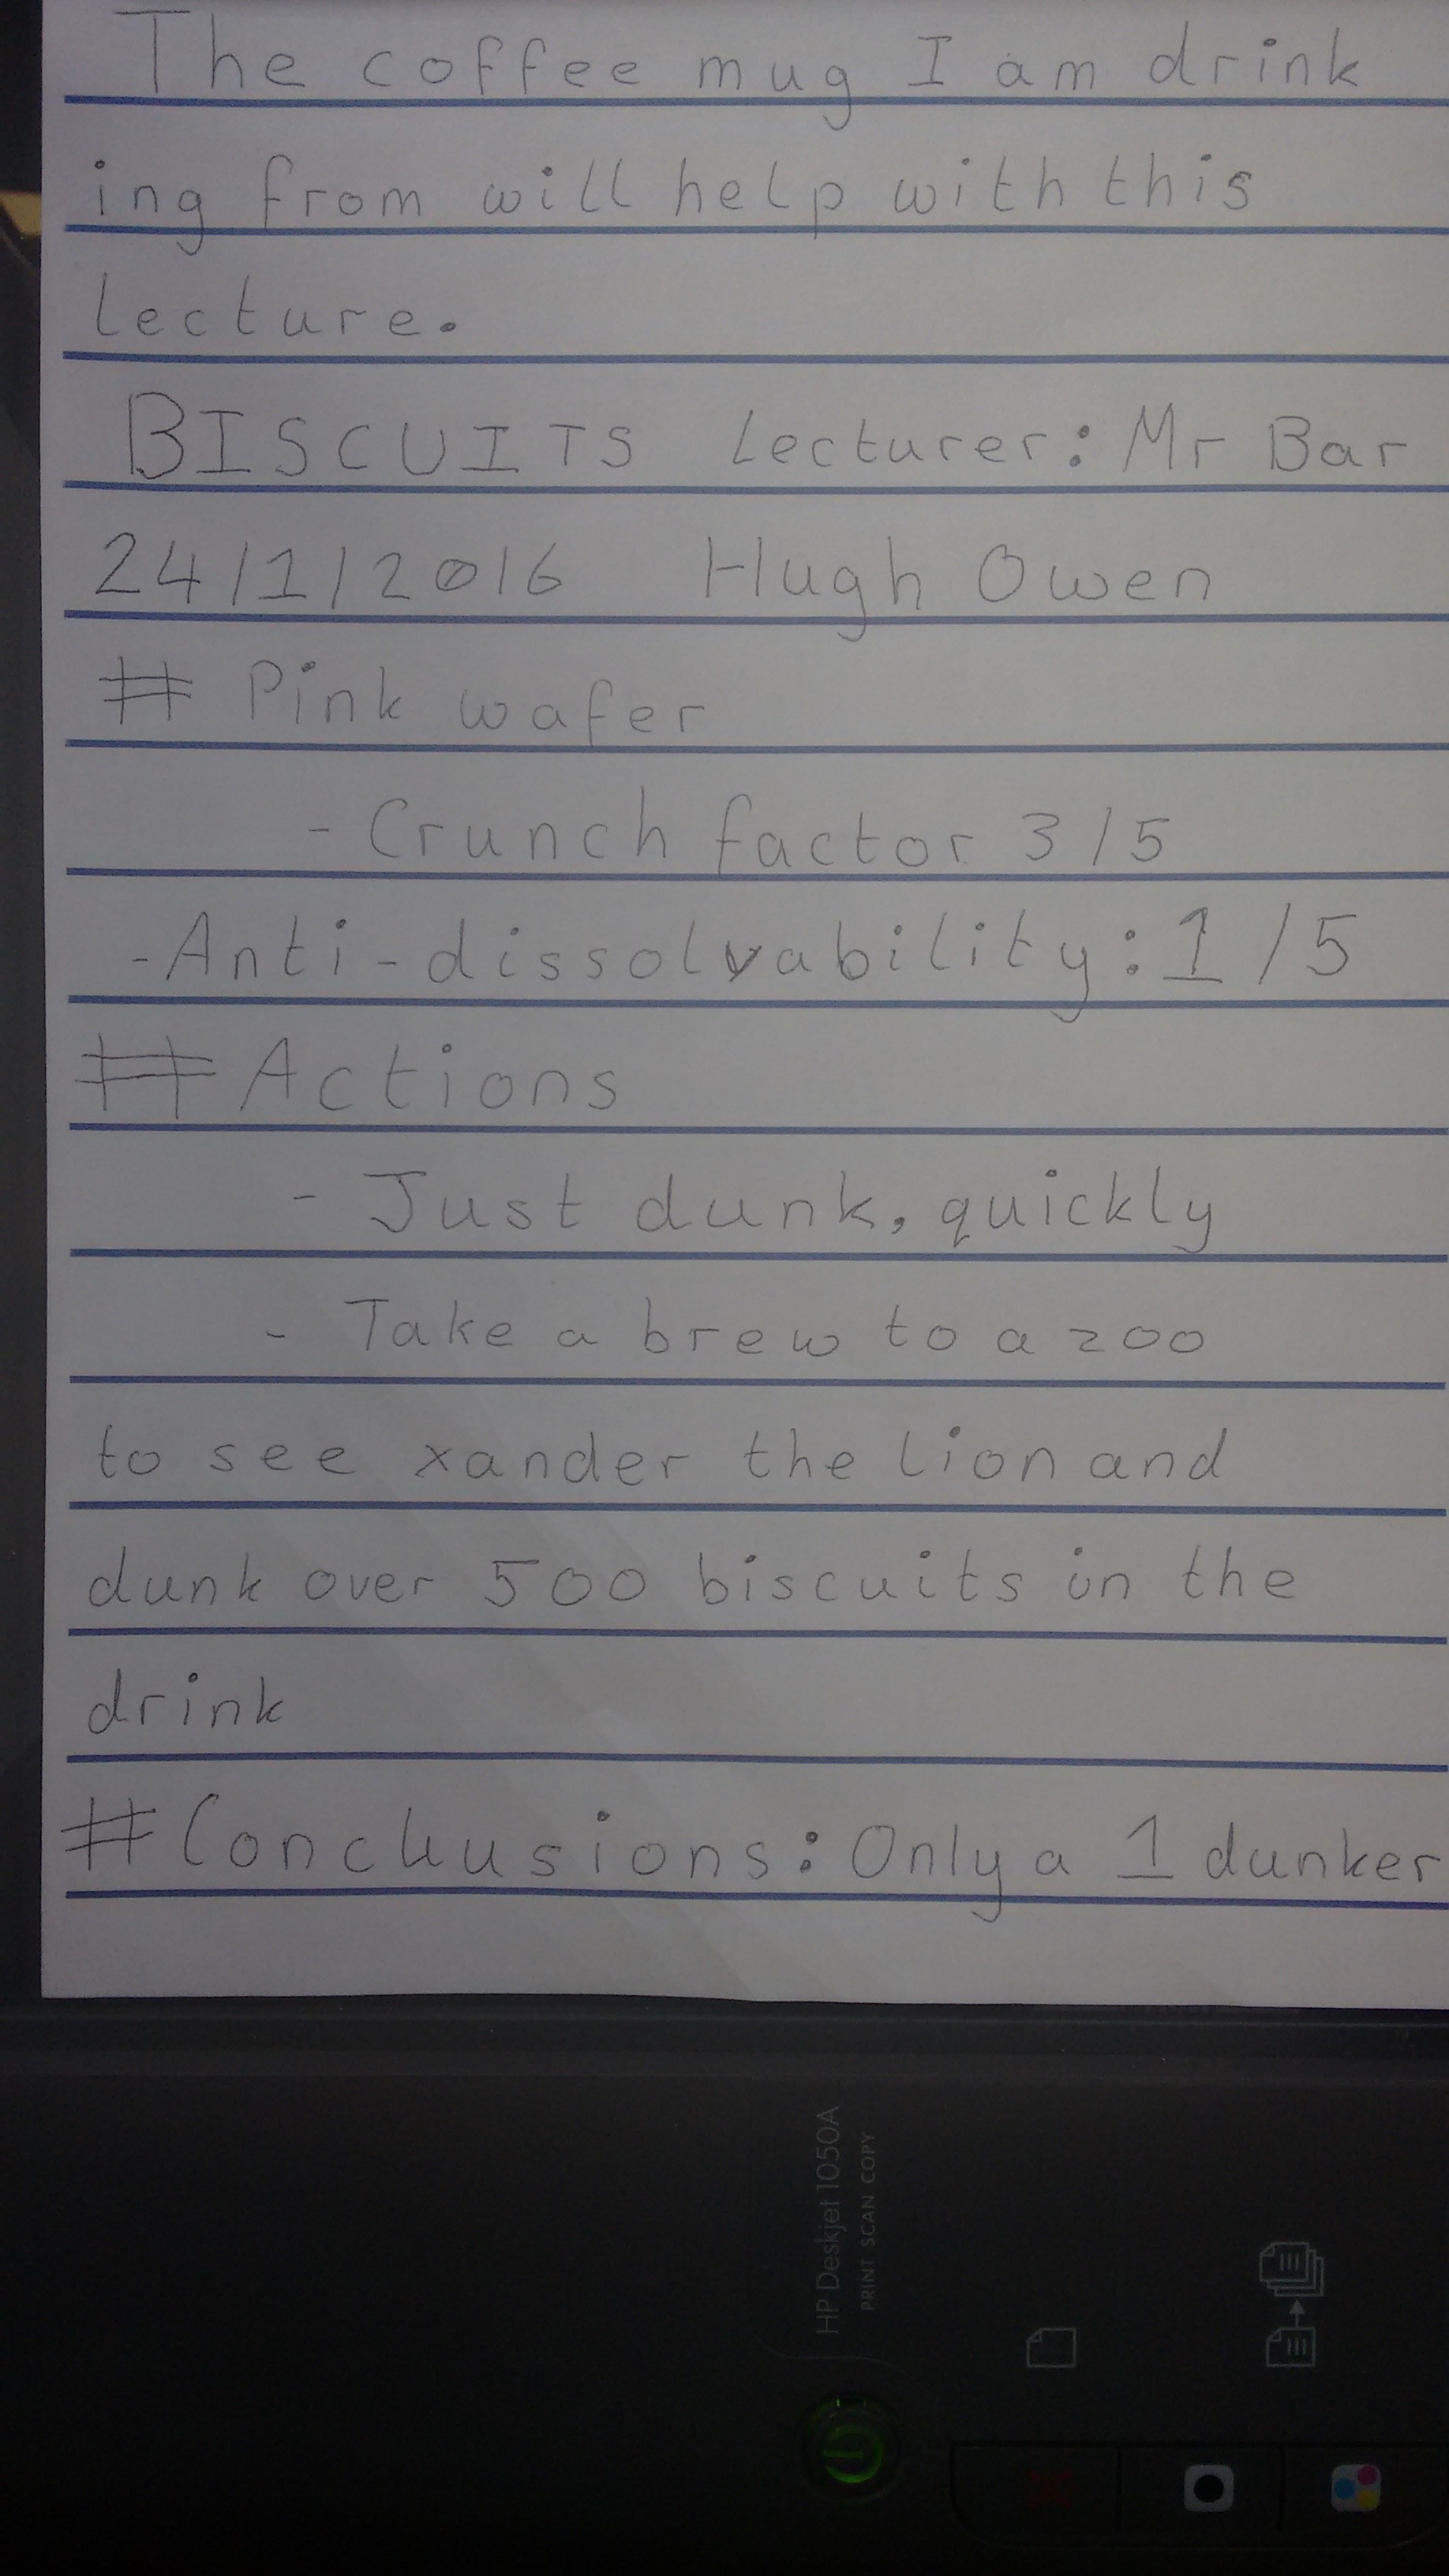 The coffee mug I am drink
ing from will help with this
lecture.
BISCUITS Lecturer: Mr Bar
24/1/2016 Hugh Owen
# Pink wafer
- Crunch factor 3/5
- Anti-dissolvability: 1/5
# Actions
- Just dunk, quickly
- Take a brew to a zoo
to see xander the lion and
dunk over 500 biscuits in the
drink
# Conclusions: Only a 1 dunker
HP Deskjet 1050A
PRINT SCAN COPY